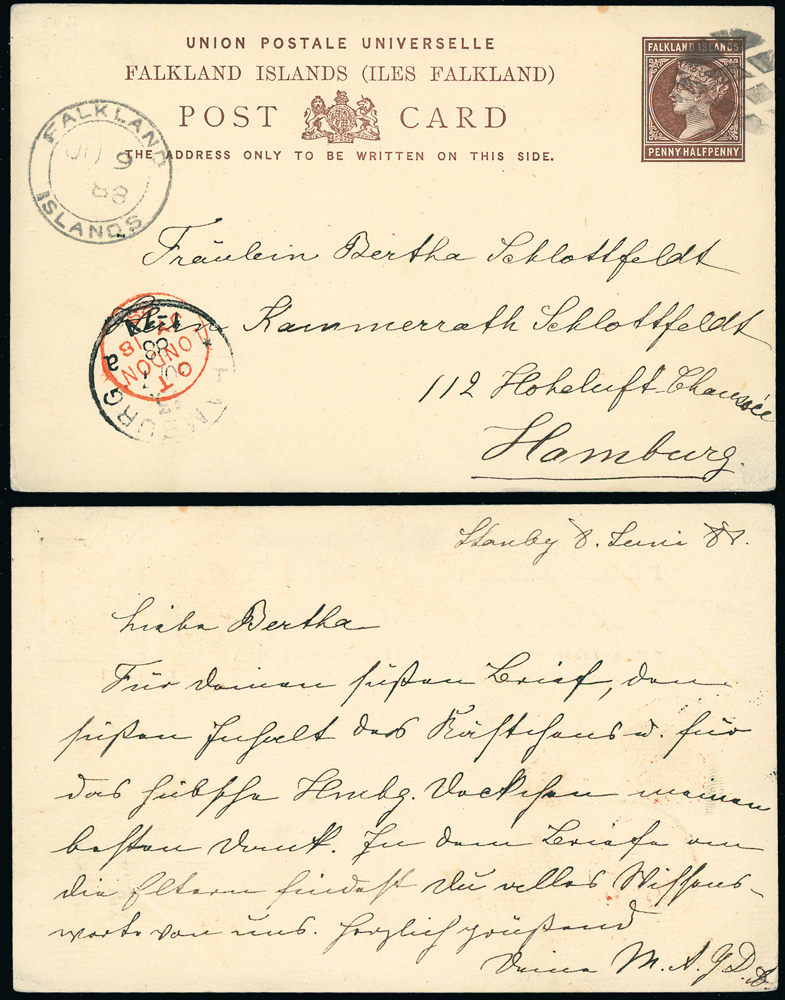 UNION POSTALE UNIVERSELLE
FALKLAND ISLANDS (ILES FALKLAND)
POST CARD
THE ADDRESS ONLY TO BE WRITTEN ON THIS SIDE.
FALKLAND ISLANDS
PENNY HALFPENNY
FALKLAND ISLANDS
JU 9
88
Fräulein Bertha Schlottfeldt
Kammerrath Schlottfeldt
112 Hoheluft-Chaussée
Hamburg.
LONDON
18
88
HAMBURG
a
Stanley 8. Juni
Liebe Bertha
Für Deinen süßen Brief, den
süßen Inhalt des Kästchens u. für
das hübsche Hmbg. Deckchen meinen
besten Dank. In dem Briefe an
die Eltern findest Du alles Wissens-
werte von uns. Herzlich grüßend
Deine M. A.